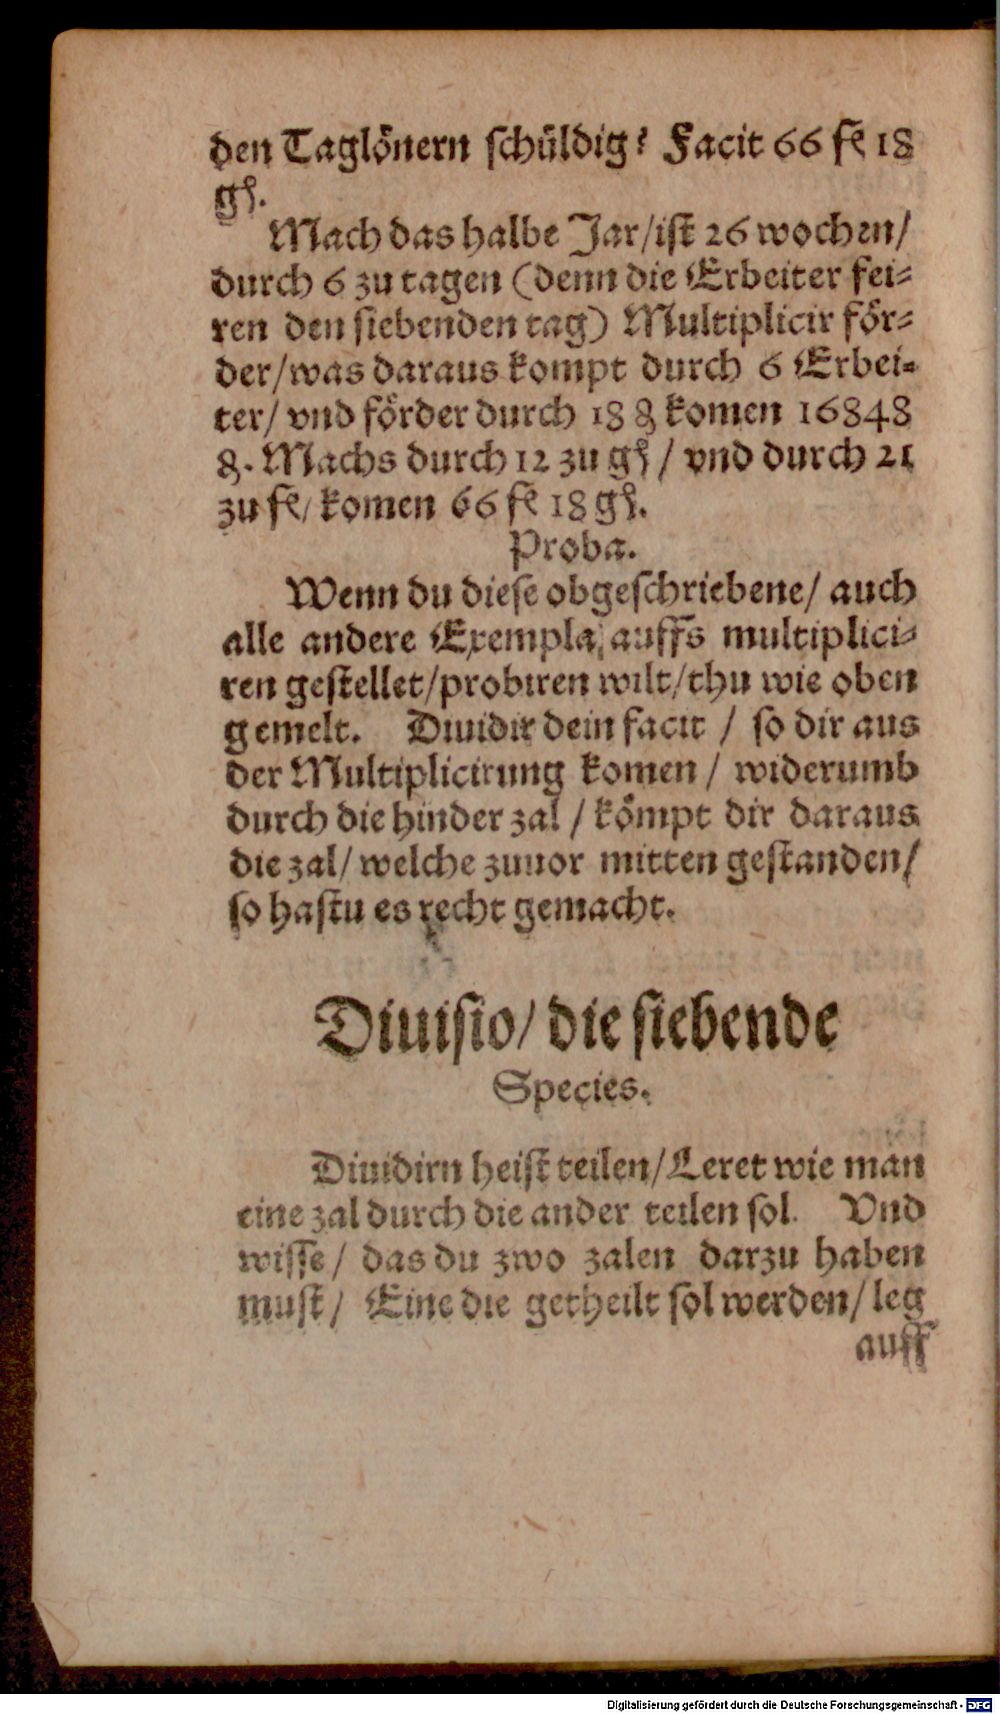 den Taglönern schüldig? Facit 66 fl 18
gſ.
Mach das halbe Jar/ist 26 wochen/
durch 6 zu tagen (denn die Erbeiter fei⸗
ren den siebenden tag) Multiplicir för⸗
der/was daraus kompt durch 6 Erbei⸗
ter/ vnd förder durch 18 ₰ komen 16848
₰. Machs durch 12 zu gſ/ vnd durch 21
zu fl/ komen 66 fl 18 gſ.
Proba.
Wenn du diese obgeschriebene/ auch
alle andere Exempla auffs multiplici⸗
ren gestellet/probiren wilt/thu wie oben
gemelt. Diuidir dein facit / so dir aus
der Multiplicirung komen / widerumb
durch die hinder zal / kömpt dir daraus
die zal/ welche zuuor mitten gestanden/
so hastu es recht gemacht.
Diuisio/ die siebende
Species.
Diuidirn heist teilen/Leret wie man
eine zal durch die ander teilen sol. Vnd
wisse/ das du zwo zalen darzu haben
must/ Eine die getheilt sol werden/leg
auff
Digitalisierung gefördert durch die Deutsche Forschungsgemeinschaft - DFG